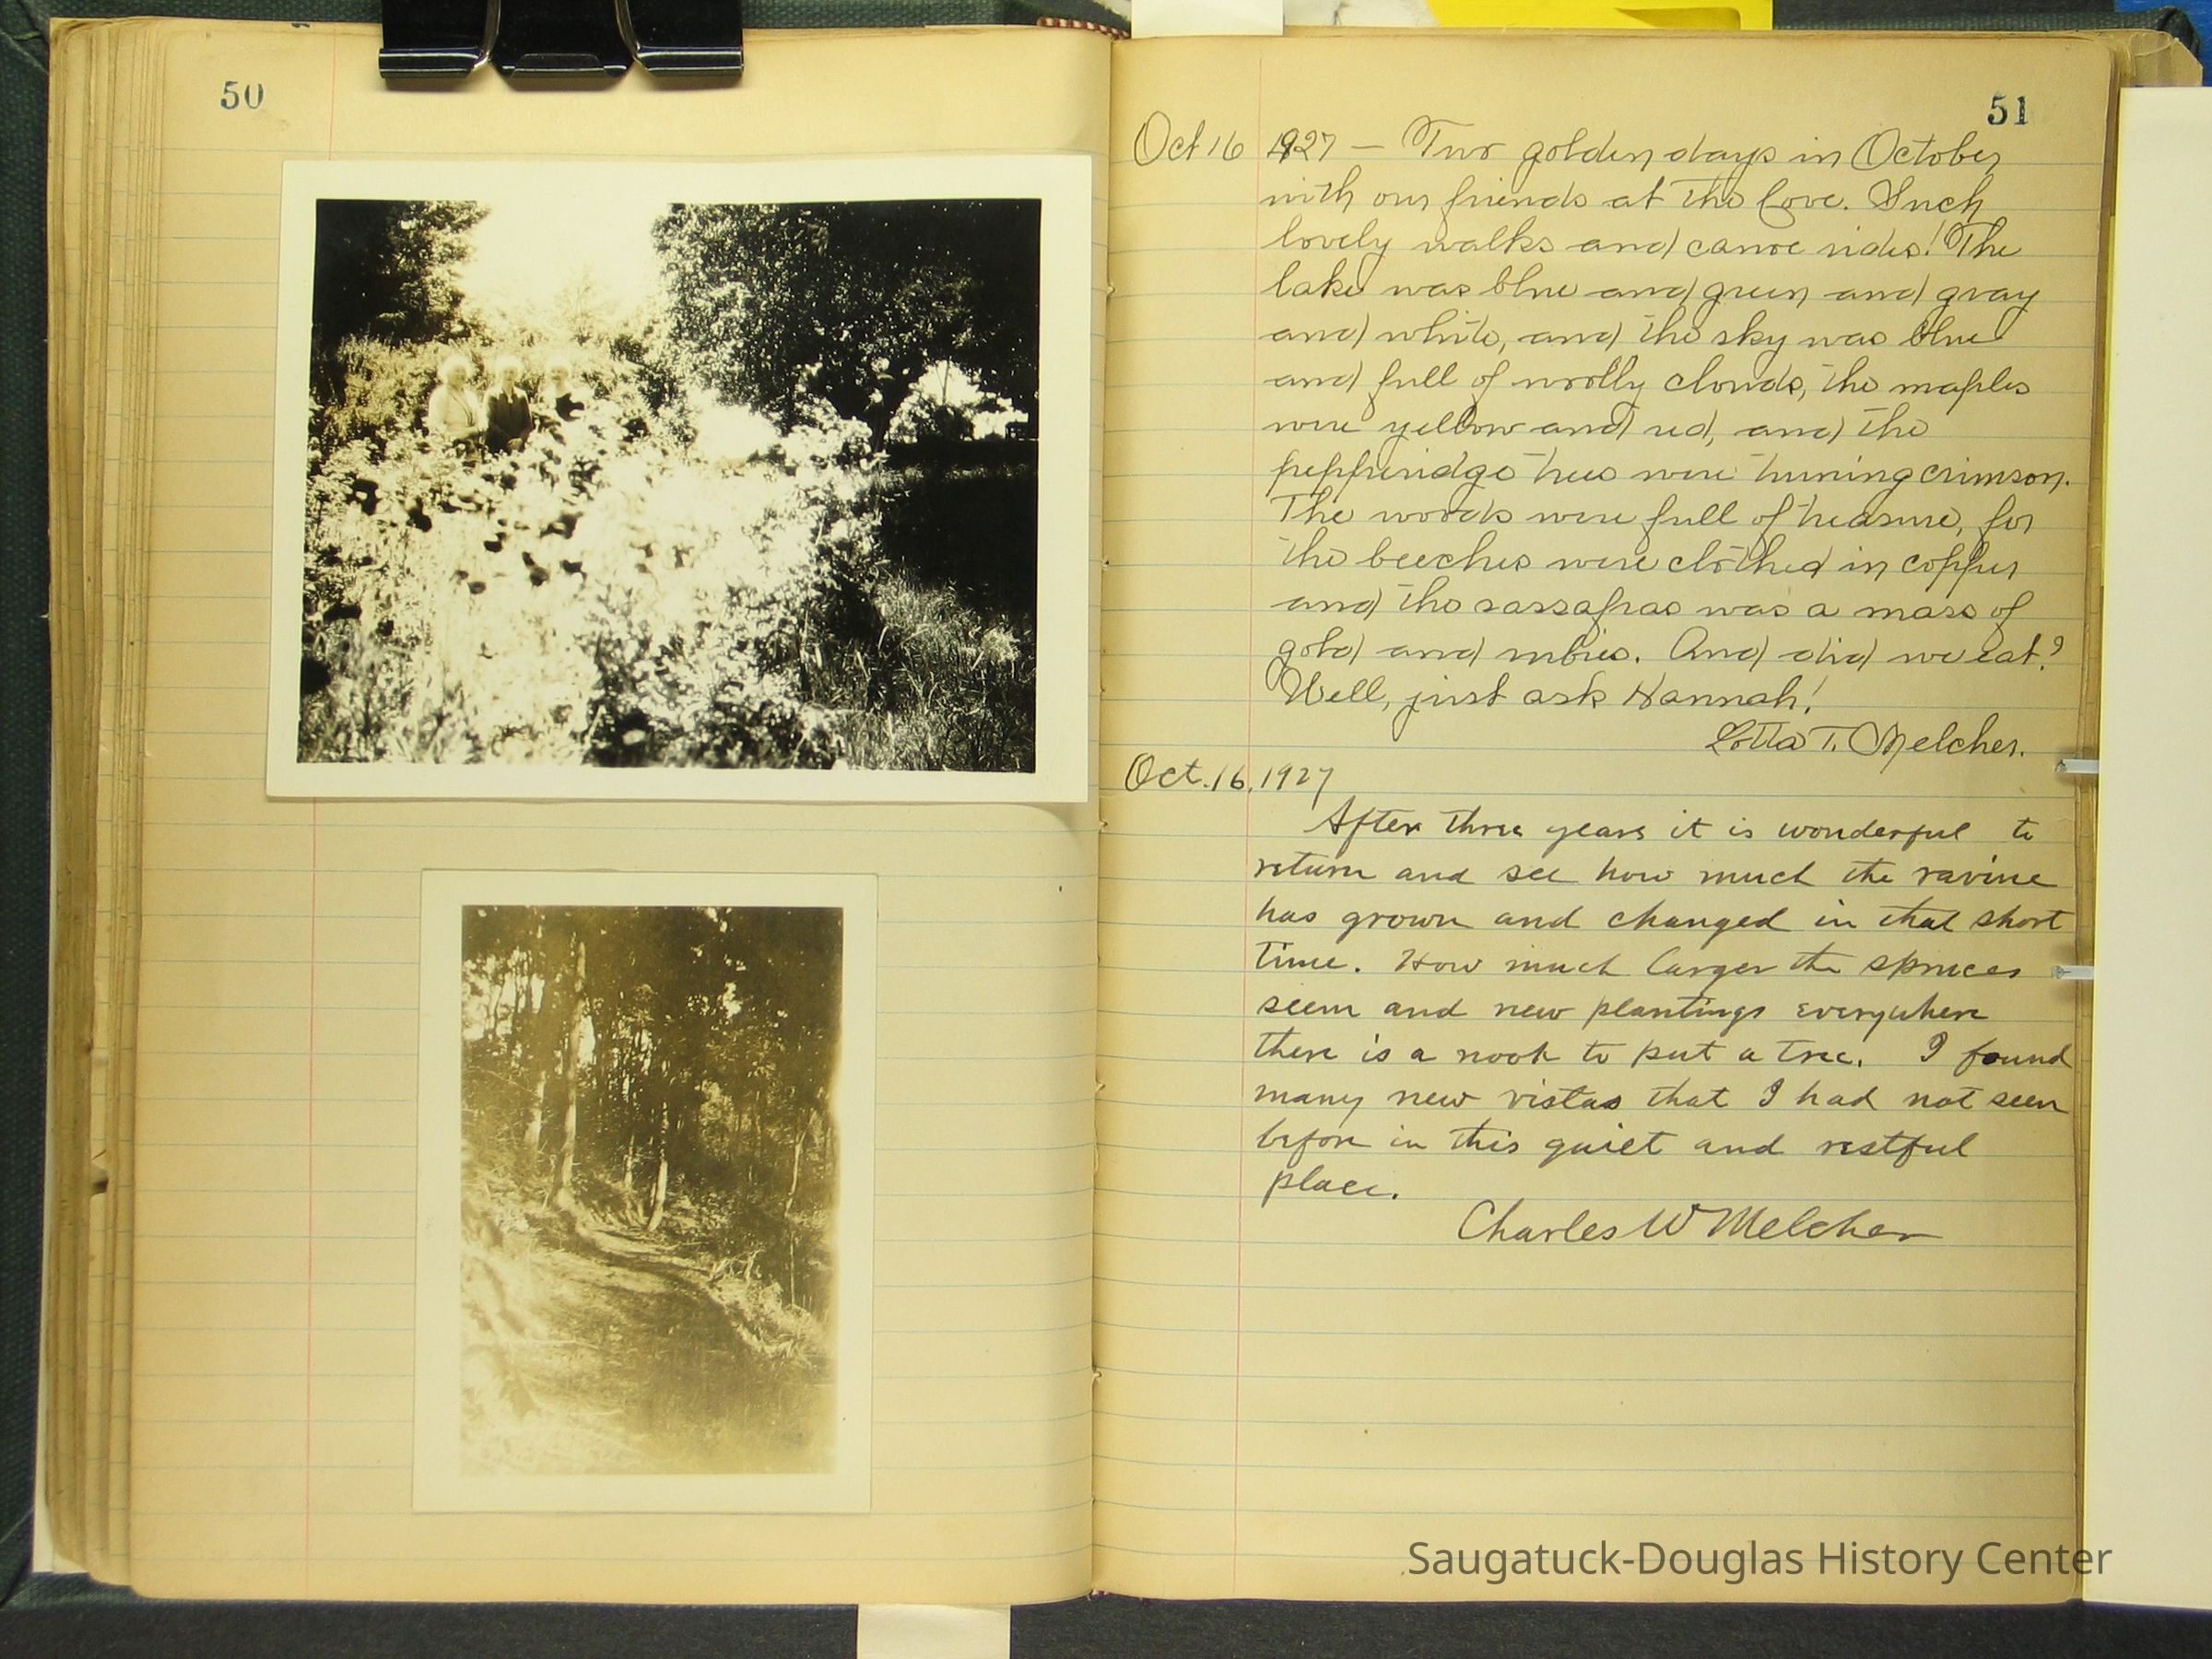 50
51
Oct 16 1927 — Two golden days in October
with our friends at the Cove. Such
lovely walks and canoe rides! The
lake was blue and green and gray
and white, and the sky was blue
and full of woolly clouds, the maples
were yellow and red, and the
pepperidge trees were turning crimson.
The woods were full of treasure, for
the beeches were clothed in copper
and the sassafras was a mass of
gold and rubies. And did we eat?
Well, just ask Hannah!
Lotta T. Melcher.
Oct. 16, 1927
After three years it is wonderful to
return and see how much the ravine
has grown and changed in that short
time. How much larger the spruces
seem and new plantings everywhere
there is a nook to put a tree. I found
many new vistas that I had not seen
before in this quiet and restful
place.
Charles W Melcher
Saugatuck-Douglas History Center